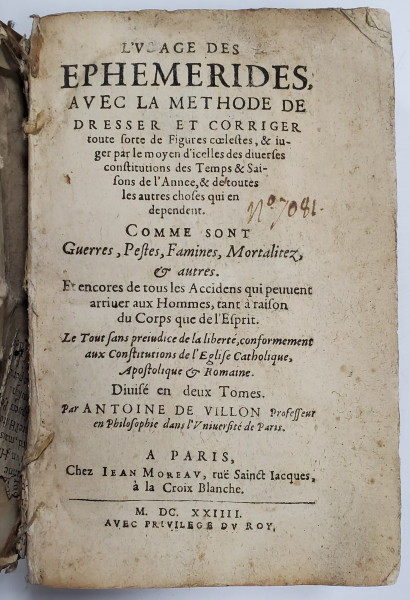 L'VSAGE DES
EPHEMERIDES,
AVEC LA METHODE DE
DRESSER ET CORRIGER
toute sorte de Figures cœlestes, & iu-
ger par le moyen d'icelles des diuerses
constitutions des Temps & Sai-
sons de l'Annee, & de toutes
les autres choses qui en
dependent.
Nº 7081.
COMME SONT
Guerres, Pestes, Famines, Mortalitez,
& autres.
Et encores de tous les Accidens qui peuuent
arriuer aux Hommes, tant à raison
du Corps que de l'Esprit.
Le Tout sans preiudice de la liberté, conformement
aux Constitutions de l'Eglise Catholique,
Apostolique & Romaine.
Diuisé en deux Tomes.
Par ANTOINE DE VILLON Professeur
en Philosophie dans l'Vniuersité de Paris.
A PARIS,
Chez IEAN MOREAV, ruë Sainct Iacques,
à la Croix Blanche.
M. DC. XXIIII.
AVEC PRIVILEGE DV ROY,